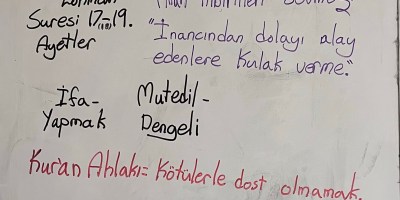 Suresi 17-19. "İnancından dolayı alay
Ayetler edenlere kulak verme."
İfa- Mutedil-
Yapmak Dengeli
Kur'an Ahlakı= Kötülerle dost olmamak.